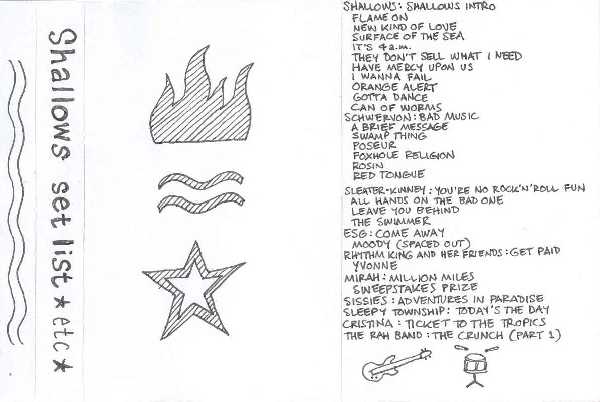 Shallows set list ★ etc ★
SHALLOWS: SHALLOWS INTRO
FLAME ON
NEW KIND OF LOVE
SURFACE OF THE SEA
IT'S 4 a.m.
THEY DON'T SELL WHAT I NEED
HAVE MERCY UPON US
I WANNA FAIL
ORANGE ALERT
GOTTA DANCE
CAN OF WORMS
SCHWERVON: BAD MUSIC
A BRIEF MESSAGE
SWAMP THING
POSEUR
FOXHOLE RELIGION
ROSIN
RED TONGUE
SLEATER-KINNEY: YOU'RE NO ROCK'N'ROLL FUN
ALL HANDS ON THE BAD ONE
LEAVE YOU BEHIND
THE SWIMMER
ESG: COME AWAY
MOODY (SPACED OUT)
RHYTHM KING AND HER FRIENDS: GET PAID
YVONNE
MIRAH: MILLION MILES
SWEEPSTAKES PRIZE
SISSIES: ADVENTURES IN PARADISE
SLEEPY TOWNSHIP: TODAY'S THE DAY
CRISTINA: TICKET TO THE TROPICS
THE RAH BAND: THE CRUNCH (PART 1)